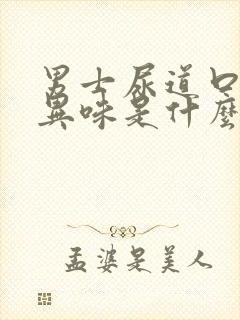 男士尿道口
異味是什麼
孟婆是美人